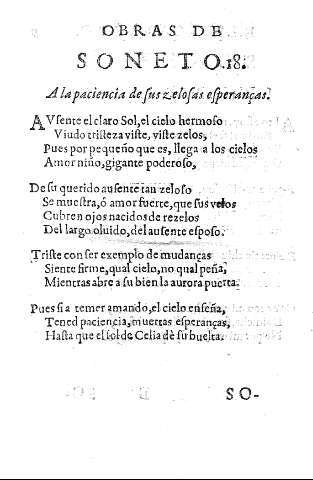 OBRAS DE
SONETO.18.
A la paciencia de sus zelosas esperanças.
AVsente el claro Sol, el cielo hermoso
Viudo tristeza viste, viste zelos,
Pues por pequeño que es, llega a los cielos
Amor niño, gigante poderoso,
De su querido ausente tan zeloso
Se muestra, ó amor fuerte, que sus velos
Cubren ojos nacidos de rezelos
Del largo oluido, del ausente esposo.
Triste con ser exemplo de mudanças
Siente firme, qual cielo, no qual peña,
Mientras abre a su bien la aurora puerta.
Pues si a temer amando, el cielo enseña,
Tened paciencia, muertas esperanças,
Hasta que el sol de Celia dè su buelta.
SO-